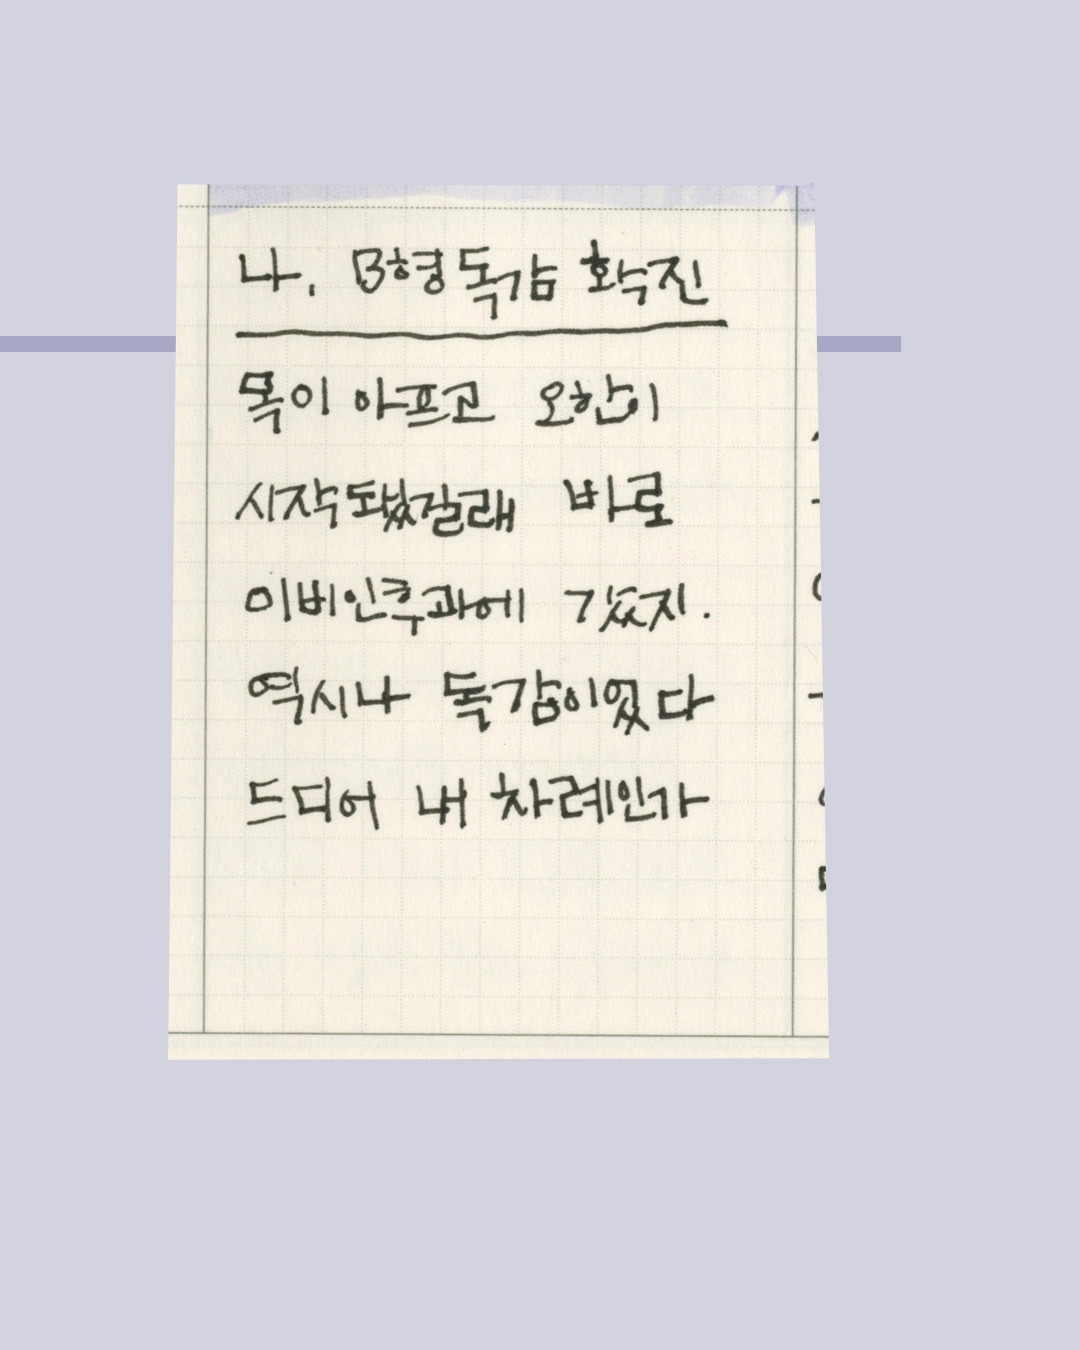 나. B형독감 확진
목이 아프고 오한이
시작됐길래 바로
이비인후과에 갔지.
역시나 독감이었다
드디어 내 차례인가